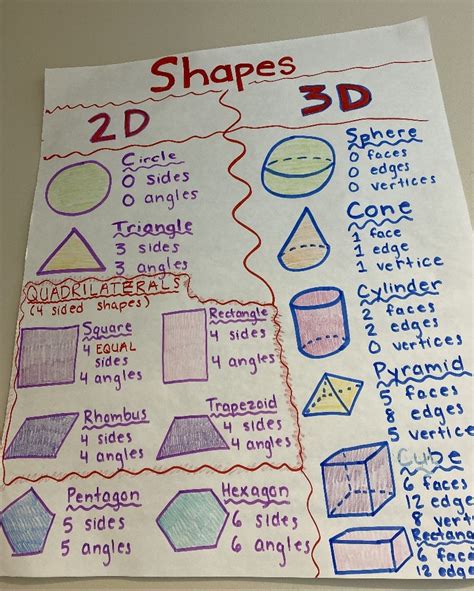 Shapes
2D
Circle
0 sides
0 angles
Triangle
3 sides
3 angles
QUADRILATERALS
(4 sided shapes)
Square
4 EQUAL
sides
4 angles
Rectangle
4 sides
4 angles
Rhombus
4 sides
4 angles
Trapezoid
4 sides
4 angles
Pentagon
5 sides
5 angles
Hexagon
6 sides
6 angles
3D
Sphere
0 faces
0 edges
0 vertices
Cone
1 face
1 edge
1 vertice
Cylinder
2 faces
2 edges
0 vertices
Pyramid
5 faces
8 edges
5 vertice
Cube
6 faces
12 edge
8 vert
Rectang
6 face
12 edge